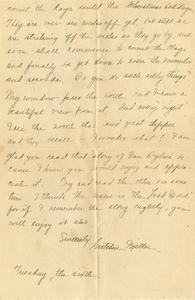 count the days until the Christmas holidays.
They are over six weeks off yet, but still we
are straining off the weeks as they go by, and
soon shall commence to count the days
and finally we get down to even the minutes
and seconds. Do you do such silly things?
My window faces the north and I have a
beautiful view from it. And every night
I see the north star and great dipper
and they recall - I wonder what! I am
glad you read that story of Van Dyke's be-
cause I knew you would enjoy and appre-
ciate it. Try and read the other one some
time. I think the name is the "Lost Word"
for if I remember the story rightly, you
will enjoy it also.
Sincerely
Tuesday, the sixth.